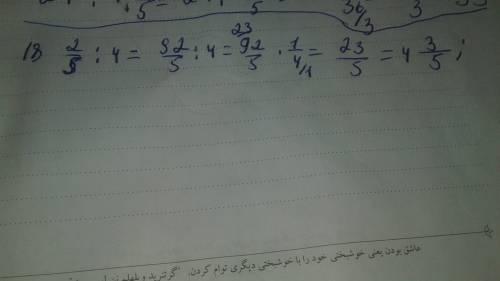 5 5 36 3
/3
18) 2/5 : 4 = 92/5 : 4 = 92/5 · 1/4 = 23/5 = 4 3/5 ;
23
/1
عاشق بودن یعنی خوشبختی خود را با خوشبختی دیگری توام کردن. "گرتنرید و یلهلم